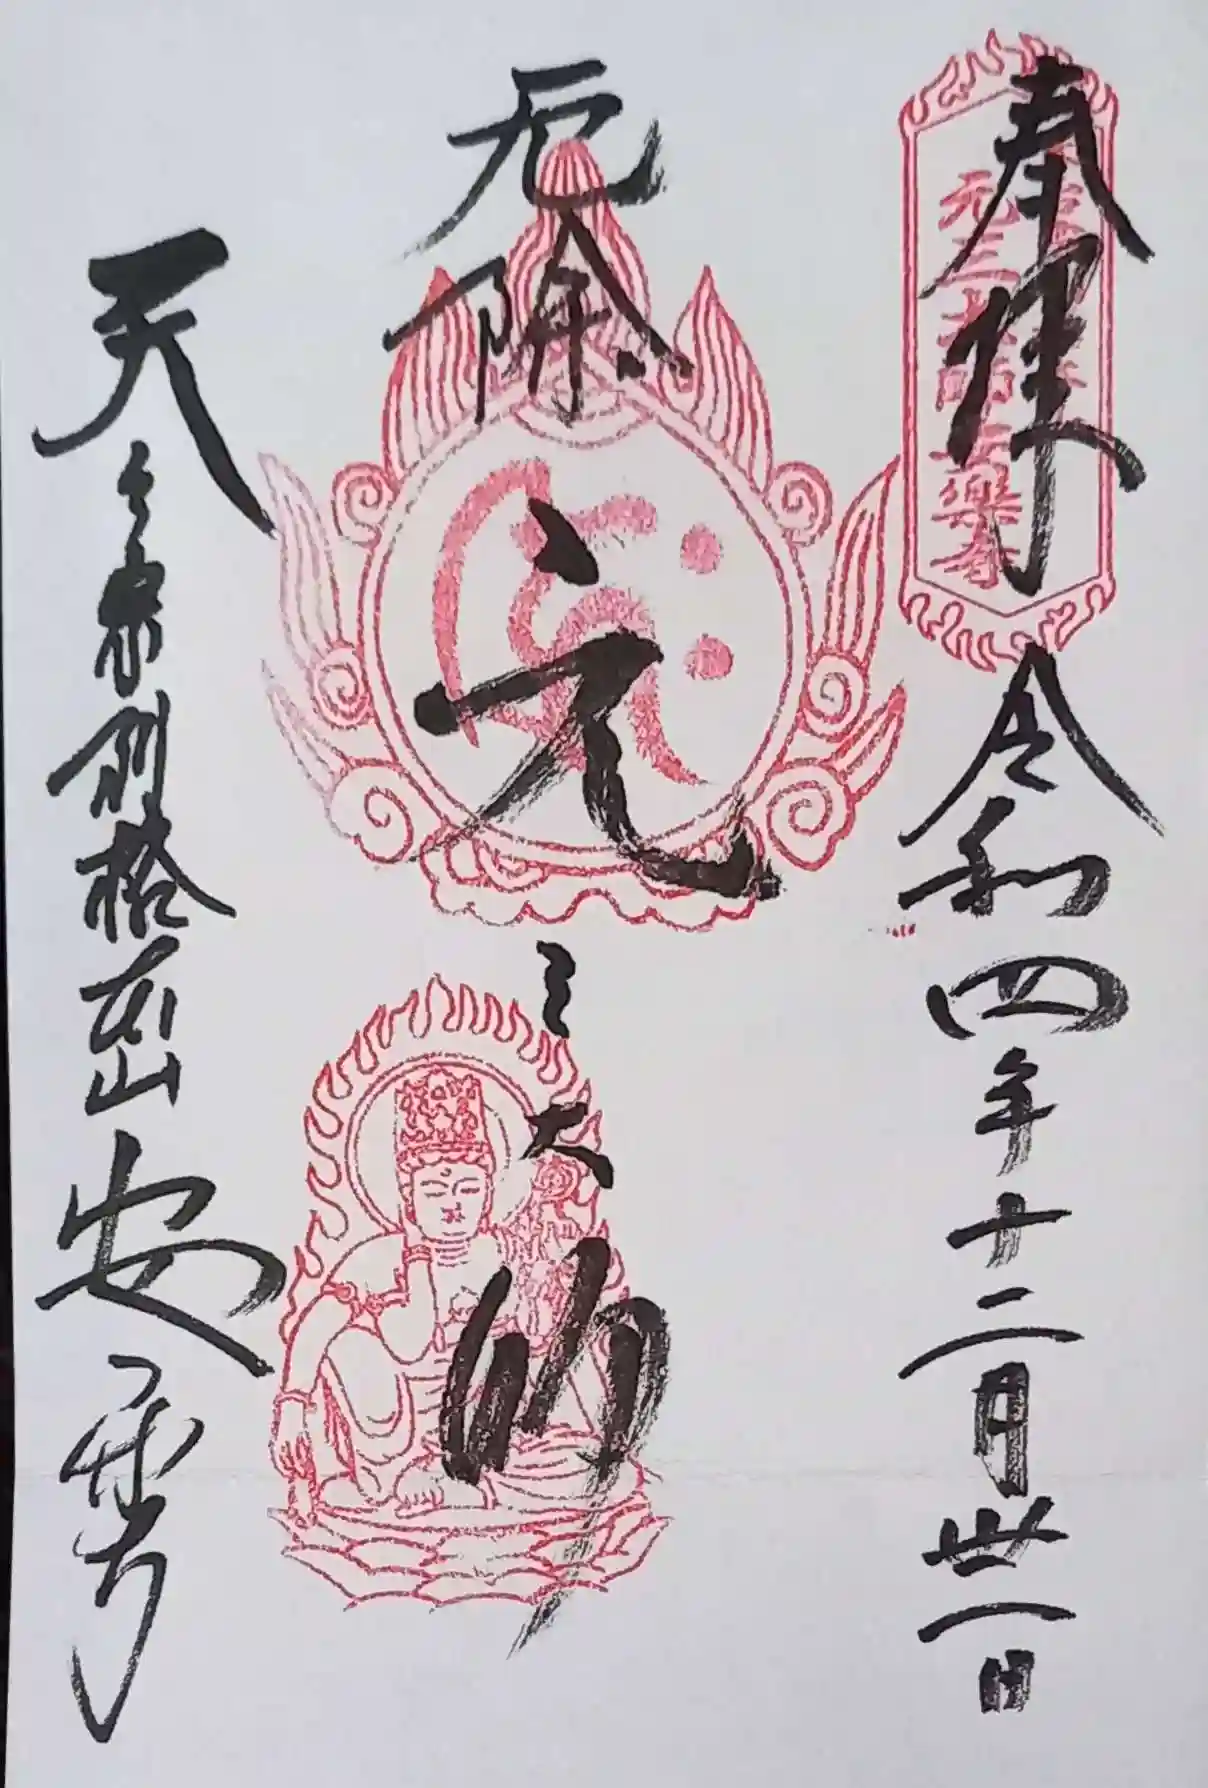 奉拝 令和四年十二月卅一日
元三大師安樂寺
厄除 元三大師
天台宗別格本山 安楽寺